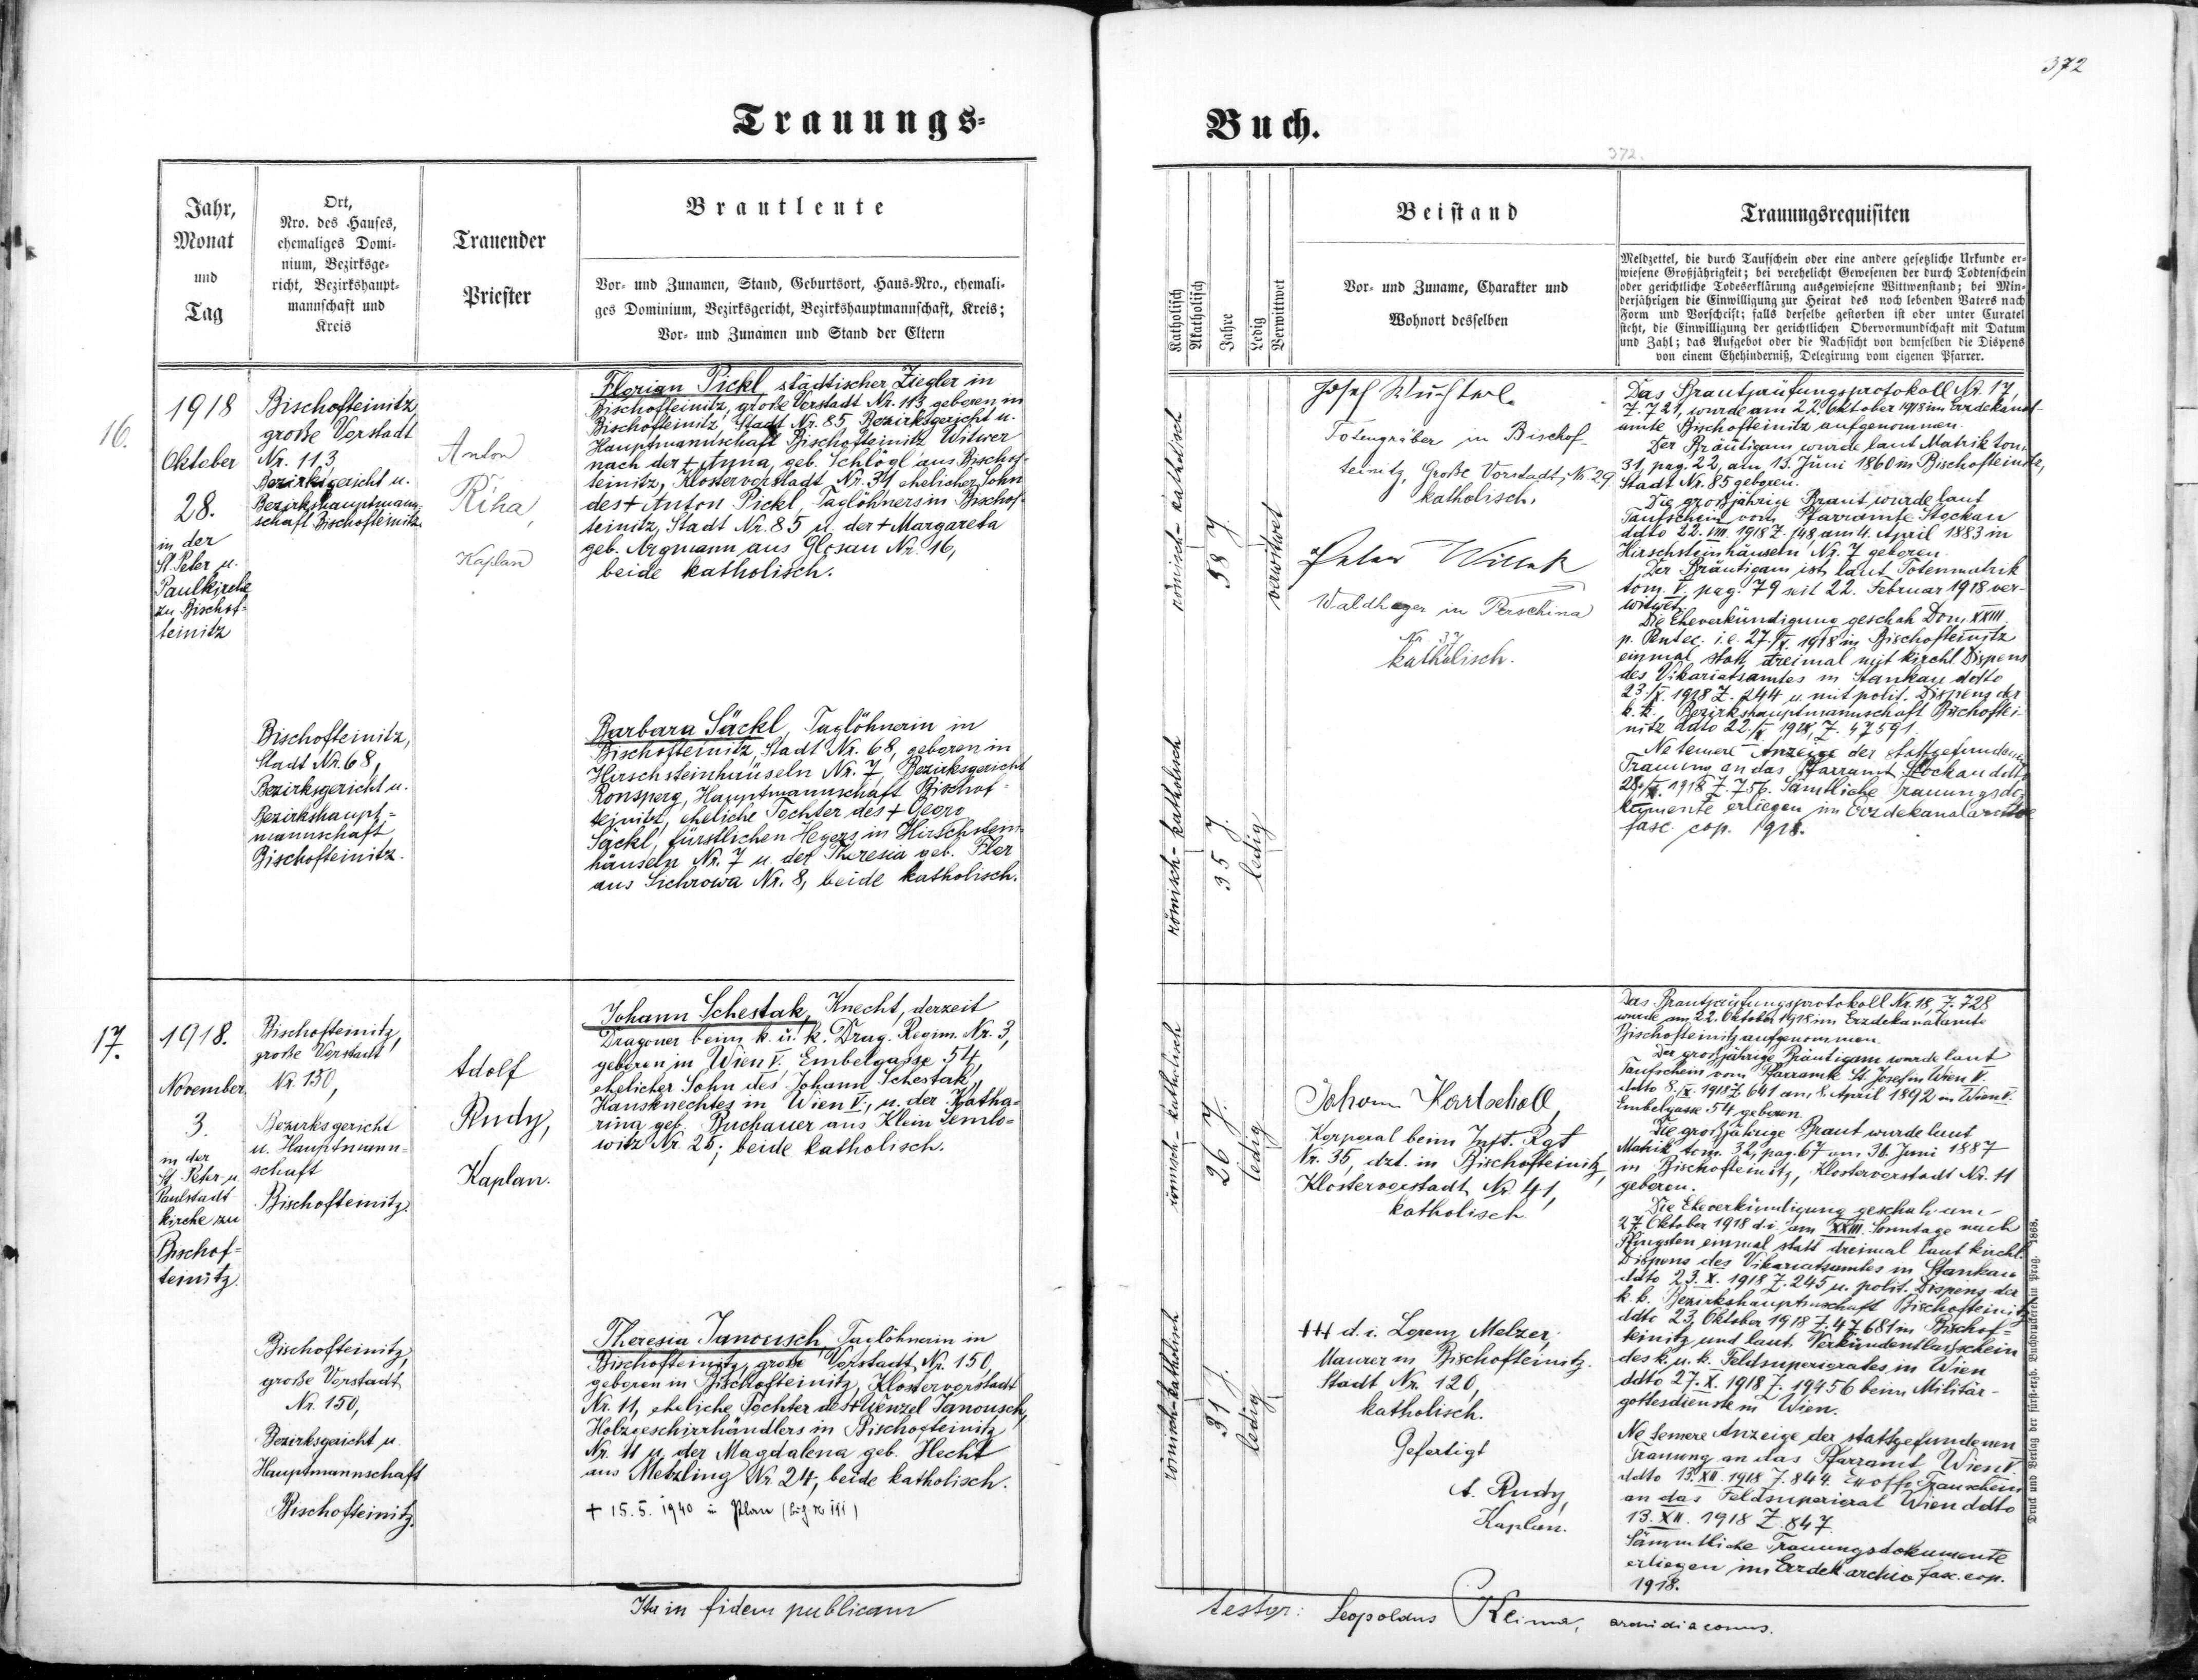 372
Trauungs=
Buch.
372.
Jahr,
Monat
und
Tag
Ort,
Nro. des Hauses,
ehemaliges Domi-
nium, Bezirksge-
richt, Bezirkshaupt-
mannschaft und
Kreis
Trauender
Priester
Brautleute
Vor- und Zunamen, Stand, Geburtsort, Haus-Nro., ehemali-
ges Dominium, Bezirksgericht, Bezirkshauptmannschaft, Kreis;
Vor- und Zunamen und Stand der Eltern
Katholisch
Akatholisch
Jahre
Ledig
Verwittwet
Beistand
Vor- und Zuname, Charakter und
Wohnort desselben
Trauungsrequisiten
Meldzettel, die durch Taufschein oder eine andere gesetzliche Urkunde er-
wiesene Großjährigkeit; bei verehelicht Gewesenen der durch Todtenschein
oder gerichtliche Todeserklärung ausgewiesene Wittwenstand; bei Min-
derjährigen die Einwilligung zur Heirat des noch lebenden Vaters nach
Form und Vorschrift; falls derselbe gestorben ist oder unter Curatel
steht, die Einwilligung der gerichtlichen Obervormundschaft mit Datum
und Zahl; das Aufgebot oder die Nachsicht von demselben die Dispens
von einem Ehehinderniß, Delegirung vom eigenen Pfarrer.
16.
1918
Oktober
28.
in der
St. Peter u.
Paulkirche
zu Bischof=
teinitz
Bischofteinitz,
große Vorstadt
Nr. 113
Bezirksgericht u.
Bezirkshauptmann-
schaft Bischofteinitz.
Anton
Řiha,
Kaplan
Florian Pickl, städtischer Ziegler in
Bischofteinitz, große Vorstadt Nr. 113, geboren in
Bischofteinitz, Stadt Nr. 85, Bezirksgericht u.
Hauptmannschaft Bischofteinitz, Witwer
nach der + Anna, geb. Schlögl aus Bischof-
teinitz, Klostervorstadt Nr. 34, ehelicher Sohn
des + Anton Pickl, Taglöhners in Bischof-
teinitz, Stadt Nr. 85 u. der + Margareta
geb. Argmann aus Glosau Nr. 16,
beide katholisch.
römisch-katholisch
58 J.
verwitwet
Josef Wuchterl.
Totengräber in Bischof-
teinitz, Große Vorstadt, Nr. 29
katholisch.
Peter Willek
Waldheger in Perschina
Nr. 37
katholisch.
Das Brautprüfungsprotokoll Nr. 17,
Z. 721, wurde am 22. Oktober 1918 im Erzdekanal-
amte Bischofteinitz aufgenommen.
Der Bräutigam wurde laut Matrik tom.
31, pag. 22, am 13. Juni 1860 in Bischofteinitz,
Stadt Nr. 85 geboren.
Die großjährige Braut wurde laut
Taufschein vom Pfarramte Stockau
dato 22. VIII. 1918 Z. 148 am 4. April 1883 in
Hirschsteinhäuseln Nr. 7 geboren.
Der Bräutigam ist laut Totenmatrik
tom. V. pag. 79 seit 22. Februar 1918 ver-
witwet.
Die Eheverkündigung geschah Dom. XXIII.
p. Pentec. i. e. 27./X. 1918 in Bischofteinitz
einmal statt dreimal mit kirchl. Dispens
des Vikariatsamtes in Stankau ddto
23./X. 1918 Z. 244 u. mit polit. Dispens der
k. k. Bezirkshauptmannschaft Bischoftei-
nitz dato 22./X. 1918, Z. 47591.
Ne temere - Anzeige der stattgefundenen
Trauung an das Pfarramt Stockau ddto
28./X. 1918 Z. 756. Sämtliche Trauungsdo-
kumente erliegen im Erzdekanalarchive
fasc. cop. 1918.
Bischofteinitz,
Stadt Nr. 68,
Bezirksgericht u.
Bezirkshaupt=
mannschaft
Bischofteinitz.
Barbara Säckl, Taglöhnerin in
Bischofteinitz, Stadt Nr. 68, geboren in
Hirschsteinhäuseln Nr. 7, Bezirksgericht
Ronsperg, Hauptmannschaft Bischof=
teinitz, eheliche Tochter des + Georg
Säckl, fürstlichen Hegers in Hirschstein-
häuseln Nr. 7 u. der Theresia geb. Fler
aus Sichrowa Nr. 8, beide katholisch.
römisch-katholisch
35 J.
ledig
17.
1918.
November
3.
in der
St. Peter u.
Paulstadt
kirche zu
Bischof=
teinitz.
Bischofteinitz,
große Vorstadt
Nr. 150,
Bezirksgericht
u. Hauptmann=
schaft
Bischofteinitz.
Adolf
Rudy,
Kaplan.
Johann Schestak, Knecht, derzeit
Dragoner beim k. u. k. Drag. Regim. Nr. 3,
geboren in Wien V, Embelgasse 54,
ehelicher Sohn des Johann Schestak,
Hausknechtes in Wien V., u. der Katha=
rina geb. Buchauer aus Klein Semlo=
witz Nr. 25; beide katholisch.
römisch-katholisch
26 J.
ledig
Johann Kartscholl,
Korporal beim Inft. Rgt
Nr. 35, dzt. in Bischofteinitz,
Klostervorstadt Nr. 41,
katholisch
Das Brautprüfungsprotokoll Nr. 18, Z. 728
wurde am 22. Oktober 1918 im Erzdekanatamte
Bischofteinitz aufgenommen.
Der großjährige Bräutigam wurde laut
Taufschein vom Pfarramte St. Josef in Wien V.
ddto 8./X. 1918 Z. 641 am 8. April 1892 in Wien V.
Embelgasse 54 geboren.
Die großjährige Braut wurde laut
Matrik tom. 32, pag. 67 am 30. Juni 1887
in Bischofteinitz, Klostervorstadt Nr. 11
geboren.
Die Eheverkündigung geschah am
27. Oktober 1918 d. i. am XXIII. Sonntage nach
Pfingsten einmal statt dreimal laut kirchl.
Dispens des Vikariatsamtes in Stankau
ddto 23. X. 1918 Z. 245 u. polit. Dispens der
k. k. Bezirkshauptmschaft Bischofteinitz
ddto 23. Oktober 1918 Z. 47681 in Bischof=
teinitz und laut Verkündentlaßschein
des k. u. k. Feldsuperiorates in Wien
ddto 27. X. 1918 Z. 19456 beim Militär-
gottesdienste in Wien.
Ne temere Anzeige der stattgefundenen
Trauung an das Pfarramt Wien V.
ddto 13. XII. 1918 Z. 844. Ex offo Trauschein
an das Feldsuperiorat Wien ddto
13. XII. 1918 Z. 847.
Sämmtliche Trauungsdokumente
erliegen im Erzdek. archiv fasc. cop.
1918.
Bischofteinitz,
große Vorstadt
Nr. 150,
Bezirksgericht u.
Hauptmannschaft
Bischofteinitz.
Theresia Janousch, Taglöhnerin in
Bischofteinitz, große Vorstadt Nr. 150,
geboren in Bischofteinitz, Klostervorstadt
Nr. 11, eheliche Tochter des + Wenzel Janousch,
Holzgeschirrhändlers in Bischofteinitz
Nr. 11 u. der Magdalena geb. Hecht
aus Metzling Nr. 24, beide katholisch.
+ 15. 5. 1940 in Plan
römisch-katholisch
31 J.
ledig
+++ d. i. Lorenz Melzer,
Maurer in Bischofteinitz.
Stadt Nr. 120,
katholisch.
Gefertigt
A. Rudy,
Kaplan.
Druck und Verlag der fürst-erzb. Buchdruckerei in Prag. 1868.
Ita in fidem publicam
testor: Leopoldus Klima, archidiaconus.